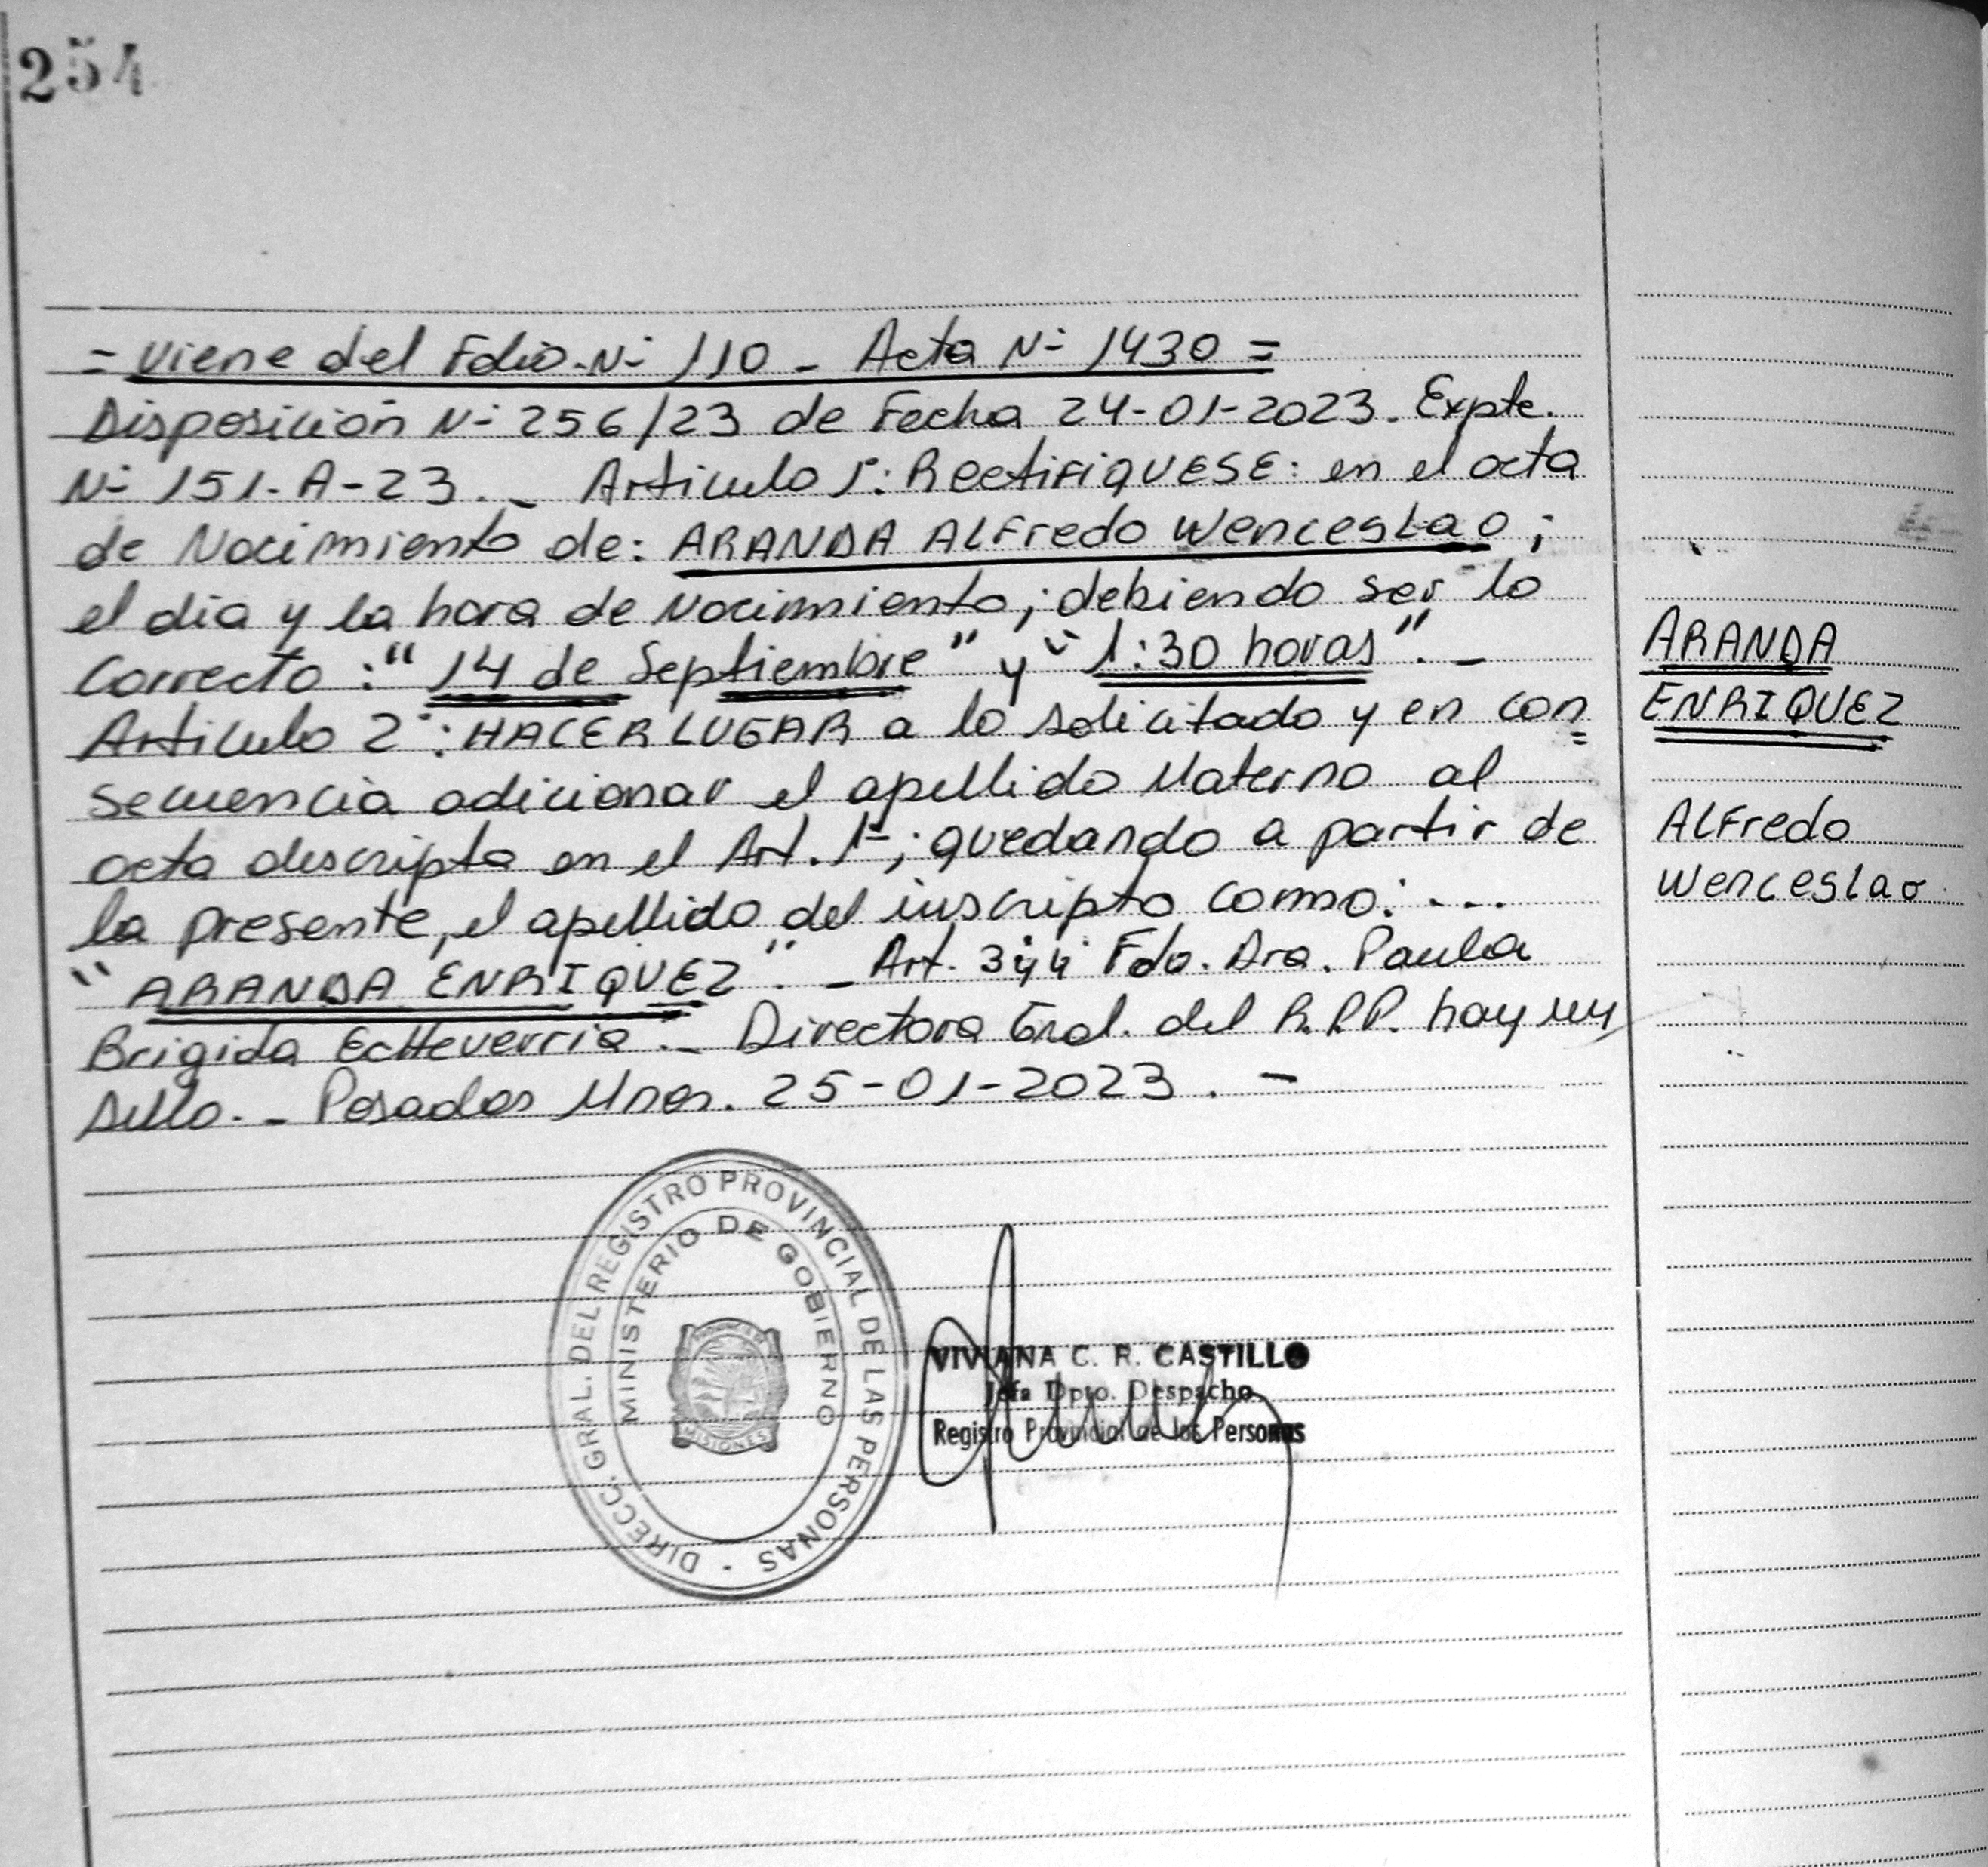 254
= Viene del Folio. Nº 110 - Acta Nº 1430 =
Disposición Nº 256/23 de Fecha 24-01-2023. Expte.
Nº 151-A-23. - Articulo 1º: RectiFiQUESE: en el acta
de Nacimiento de: ARANDA ALFredo WencesLao;
el dia y la hora de Nacimiento; debiendo ser lo
Correcto: "14 de Septiembre" y "1:30 horas". -
Articulo 2º: HACER LUGAR a lo solicitado y en con=
secuencia adicionar el apellido Materno al
acta descripta en el Art. 1º; quedando a partir de
la presente, el apellido del inscripto como: ...
"ARANDA ENRIQUEZ". - Art. 3 y 4 Fdo. Dra. Paula
Brigida EcHeverria. - Directora Gral. del R.P.P. hay un
sello. - Posadas Mnes. 25-01-2023. -
ARANDA
ENRIQUEZ
ALFredo
WencesLao
DIRECC. GRAL. DEL REGISTRO PROVINCIAL DE LAS PERSONAS -
MINISTERIO DE GOBIERNO
MISIONES
VIVIANA C. R. CASTILLO
Jefa Dpto. Despacho
Registro Provincial de las Personas